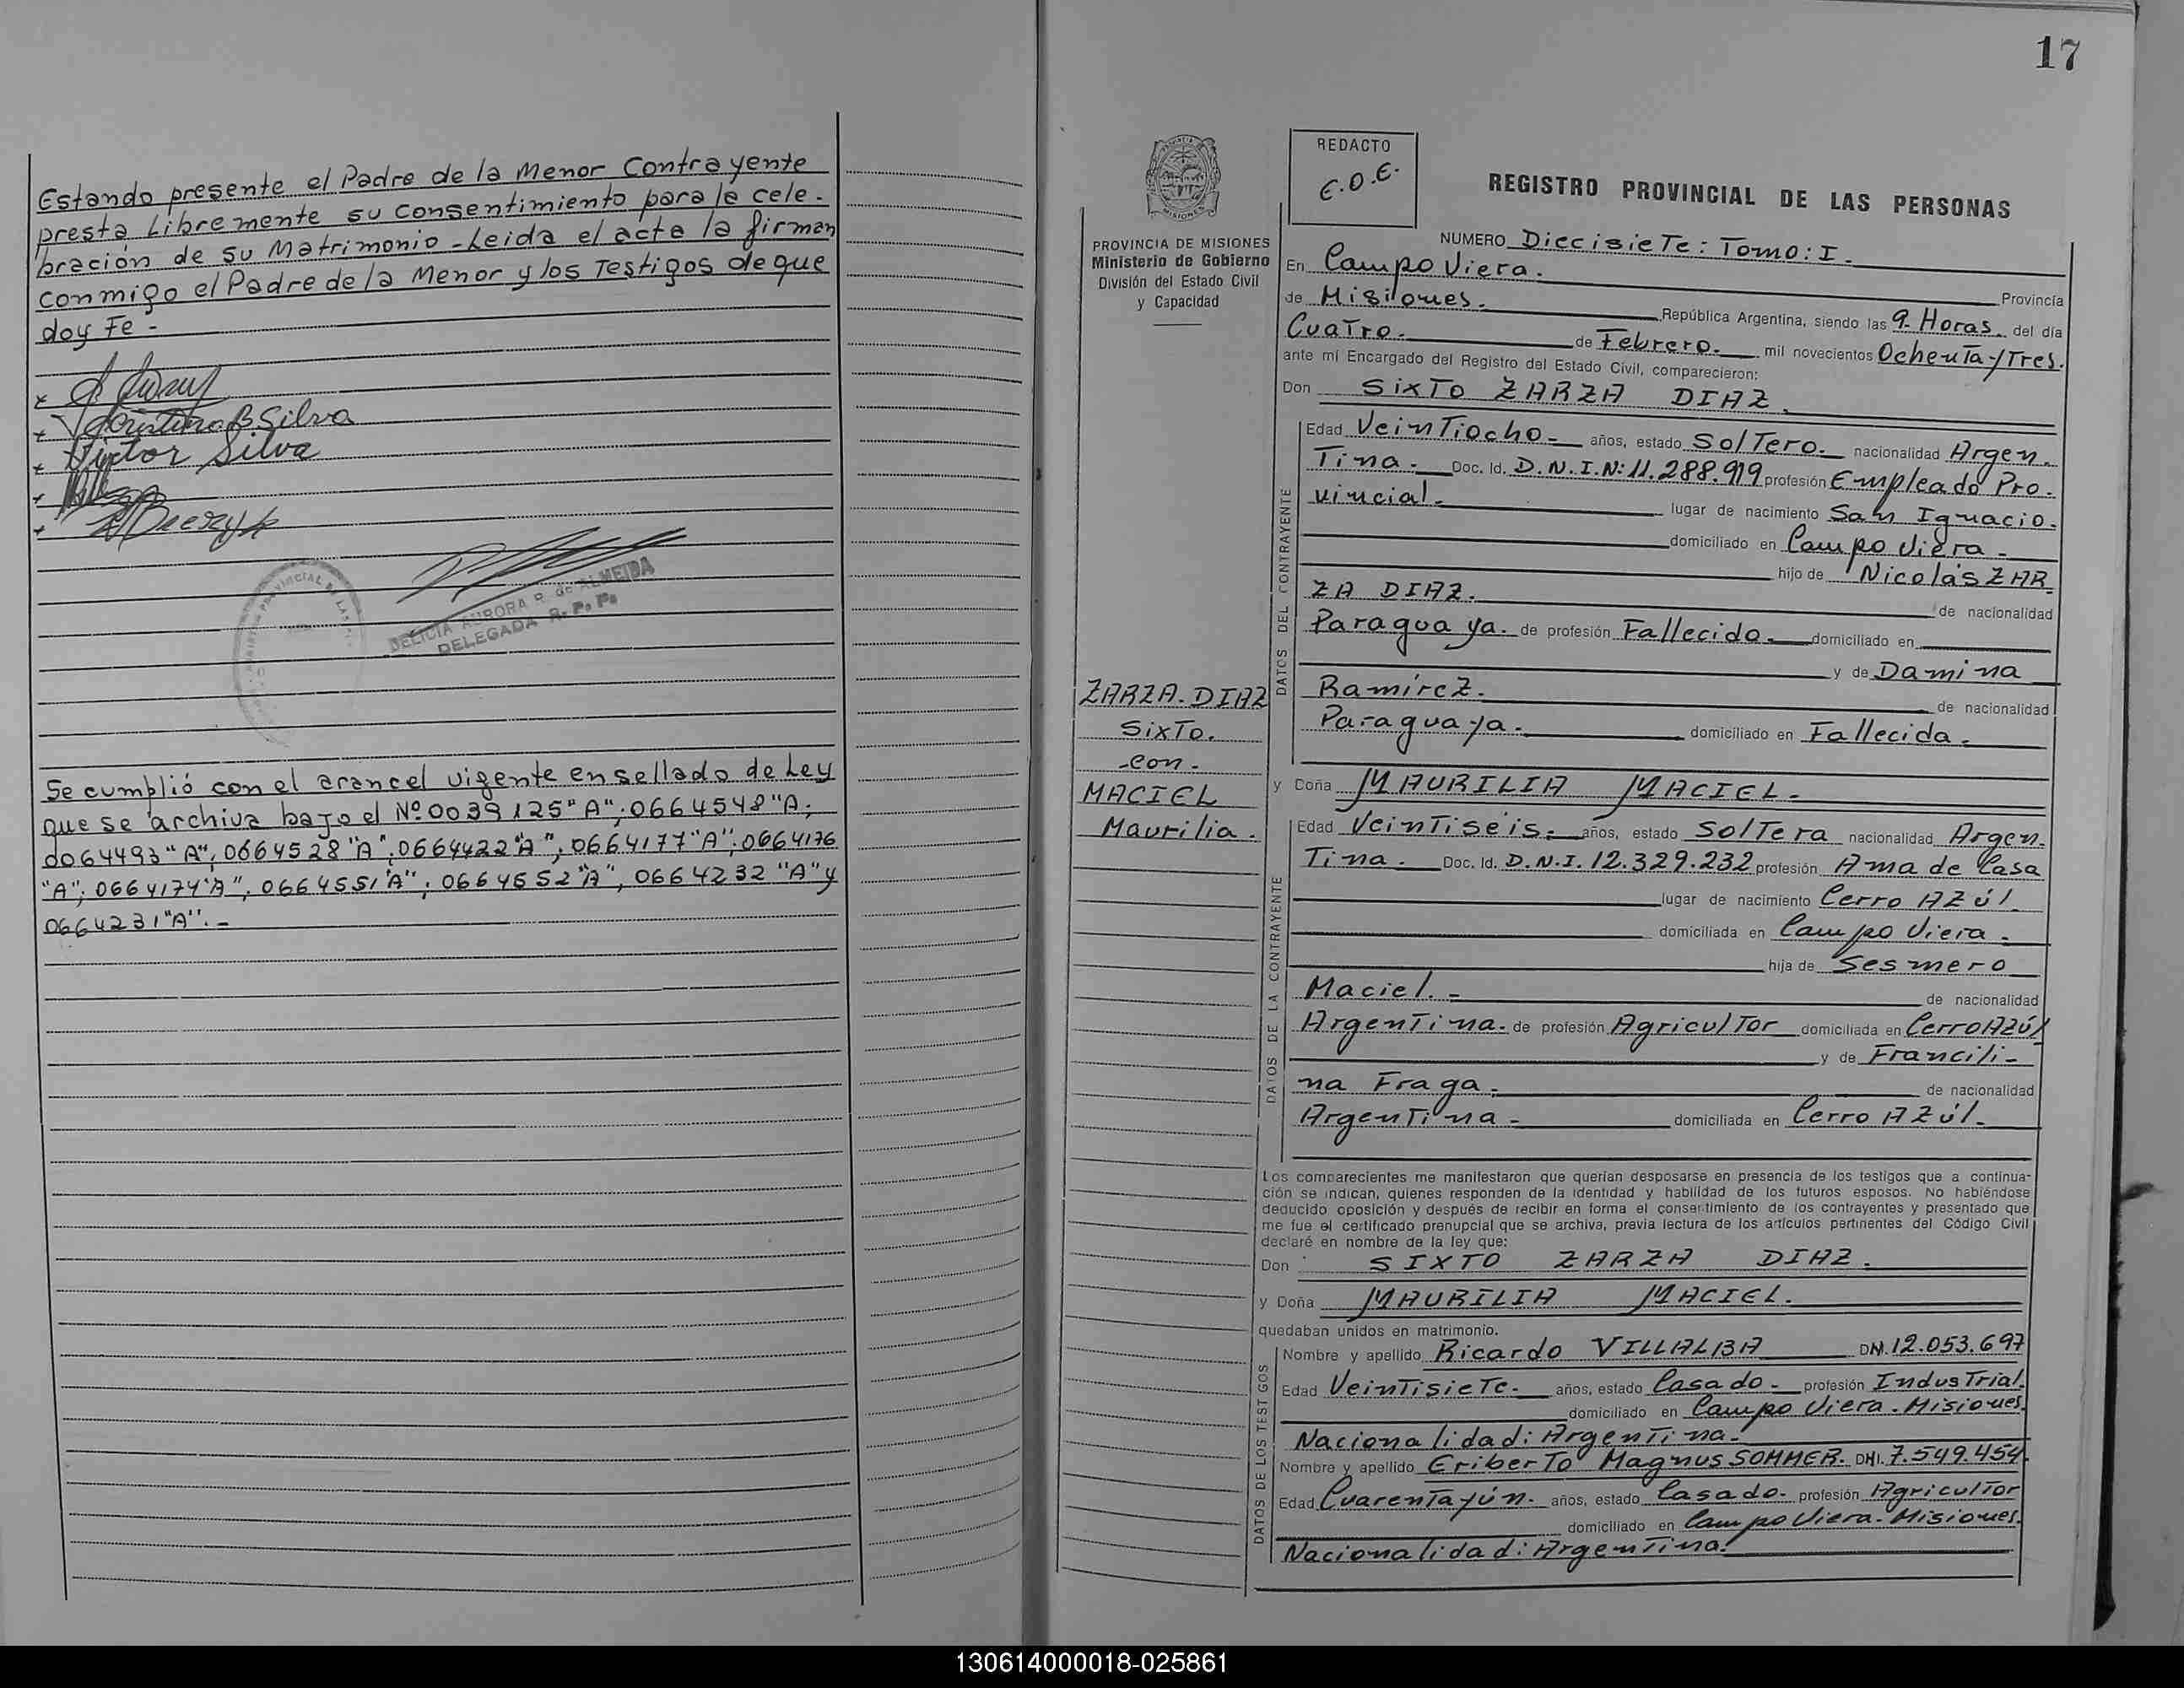 Estando presente el Padre de la Menor Contrayente
presta Libremente su consentimiento para la cele-
bración de su Matrimonio - Leida el acta la firman
conmigo el Padre de la Menor y los Testigos de que
doy Fe -
Cristina B Silva
Victor Silva
DELICIA AURORA R. de ALMEIDA
DELEGADA R. P. P.
Se cumplió con el arancel vigente en sellado de Ley
que se archiva bajo el Nº 0039125 "A"; 0664548 "A;
0064493 "A"; 0664528 "A"; 0664422 "A"; 0664177 "A"; 0664176
"A"; 0664174 "A"; 0664551 "A"; 0664552 "A", 0664232 "A" y
0664231 "A". -
17
PROVINCIA DE MISIONES
Ministerio de Gobierno
División del Estado Civil
y Capacidad
ZARZA-DIAZ
Sixto.
-con-
MACIEL
Maurilia.
REDACTO
E.O.E.
REGISTRO PROVINCIAL DE LAS PERSONAS
NUMERO Diecisiete: Tomo: I.
En Campo Viera. Provincia
de Misiones. República Argentina, siendo las 9- Horas. del día
Cuatro. de Febrero. mil novecientos Ochenta y Tres.
ante mí Encargado del Registro del Estado Civil, comparecieron:
Don SIXTO ZARZA DIAZ.
DATOS DEL CONTRAYENTE
Edad Veintiocho- años, estado Soltero. nacionalidad Argen-
Tina. Doc. Id. D.N.I.N: 11.288.919 profesión Empleado Pro-
vincial. lugar de nacimiento San Ignacio.
domiciliado en Campo Viera -
hijo de Nicolás ZAR
ZA DIAZ. de nacionalidad
Paraguaya. de profesión Fallecido. domiciliado en
y de Damina
Ramírez. de nacionalidad
Paraguaya. domiciliado en Fallecida.
y Doña MAURILIA MACIEL.
DATOS DE LA CONTRAYENTE
Edad Veintiséis. años, estado Soltera nacionalidad Argen-
Tina. Doc. Id. D.N.I. 12.329.232 profesión Ama de Casa
lugar de nacimiento Cerro Azúl.
domiciliada en Campo Viera.
hija de Sesmero
Maciel. - de nacionalidad
Argentina. de profesión Agricultor domiciliada en Cerro Azúl
y de Francili-
na Fraga. de nacionalidad
Argentina - domiciliada en Cerro Azúl.
Los comparecientes me manifestaron que querían desposarse en presencia de los testigos que a continua-
ción se indican, quienes responden de la identidad y habilidad de los futuros esposos. No habiéndose
deducido oposición y después de recibir en forma el consentimiento de los contrayentes y presentado que
me fue el certificado prenupcial que se archiva, previa lectura de los artículos pertinentes del Código Civil
declaré en nombre de la ley que:
Don SIXTO ZARZA DIAZ.
y Doña MAURILIA MACIEL.
quedaban unidos en matrimonio.
DATOS DE LOS TESTIGOS
Nombre y apellido Ricardo VILLALBA DNI. 12.053.697
Edad Veintisiete. años, estado Casado- profesión Industrial.
domiciliado en Campo Viera - Misiones.
Nacionalidad: Argentina.
Nombre y apellido Eriberto Magnus SOMMER. DNI. 7.549.454
Edad Cuarenta y ún. años, estado Casado- profesión Agricultor
domiciliado en Campo Viera - Misiones.
Nacionalidad: Argentina.
130614000018-025861